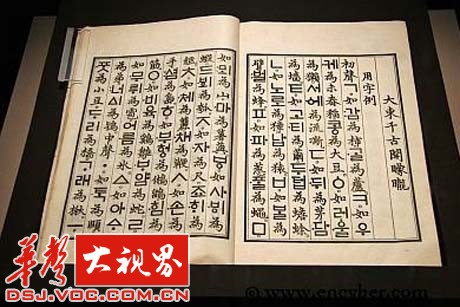 大東千古開矇矓
用字例
初聲ㄱ。如감為柿。ᄀᆞᆯ為蘆。ㅋ。如우
케為未舂稻。콩為大豆。ㆁ。如러울
為獺。서에為流凘。ㄷ。如뒤為茅。담
為墻。ㅌ。如고티為繭。두텁為蟾蜍。
ㄴ。如노로為獐。납為猿。ㅂ。如ᄇᆞᆯ為
臂。벌為蜂。ㅍ。如파為葱。ᄑᆞᆯ為蠅。ㅁ。
如뫼為山。마為薯藇。ㅸ。如사ᄫᅵ為
蝦。드ᄫᅴ為瓠。ㅈ。如자為尺。죠ᄒᆡ為
紙。ㅊ。如체為籭。채為鞭。ㅅ。如손為
手。셤為島。ㅎ。如부헝為鵂鶹。힘為
筋。ㅇ。如비육為鷄雛。ᄇᆞ얌為蛇。ㄹ。
如무뤼為雹。어름為氷。ㅿ。如아ᅀᆞ
為弟。너ᅀᅵ為鴇。中聲ㆍ。如ᄐᆞᆨ為頤。
ᄑᆞᆺ為小豆。ᄃᆞ리為橋。ᄀᆞ래為楸。ㅡ。
华声 大视界
DSJ.VOC.COM.CN
© www.encyber.com